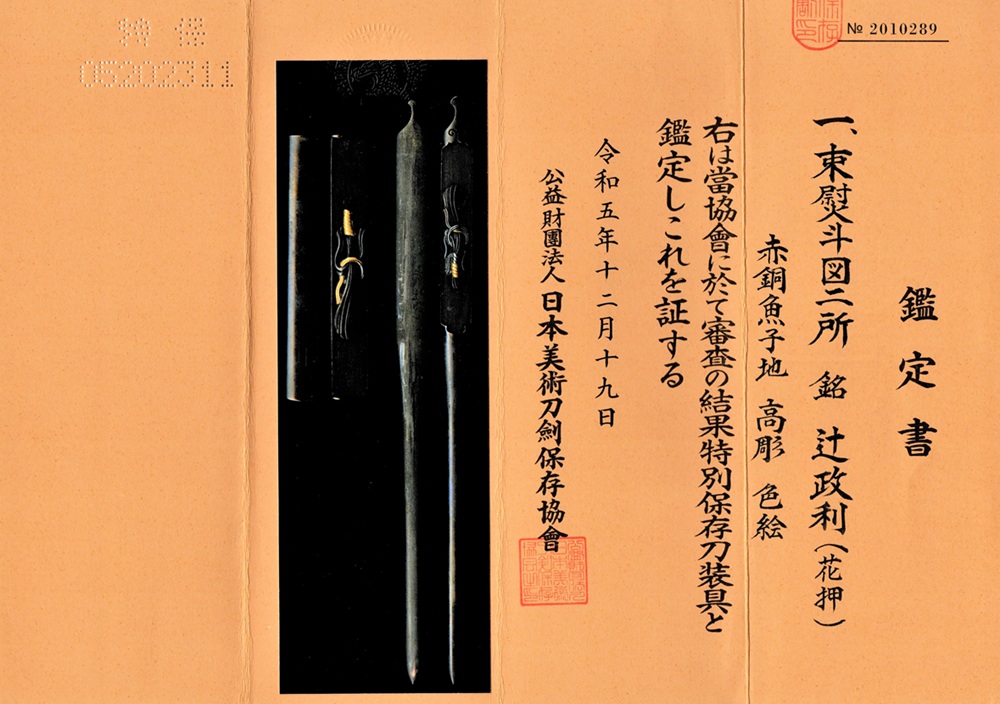 № 2010289
鑑定書
一、束熨斗図二所 銘 辻政利(花押)
赤銅魚子地 高彫 色絵
右は當協會に於て審査の結果特別保存刀装具と
鑑定しこれを証する
令和五年十二月十九日
公益財團法人 日本美術刀劍保存協會
特保
05202311